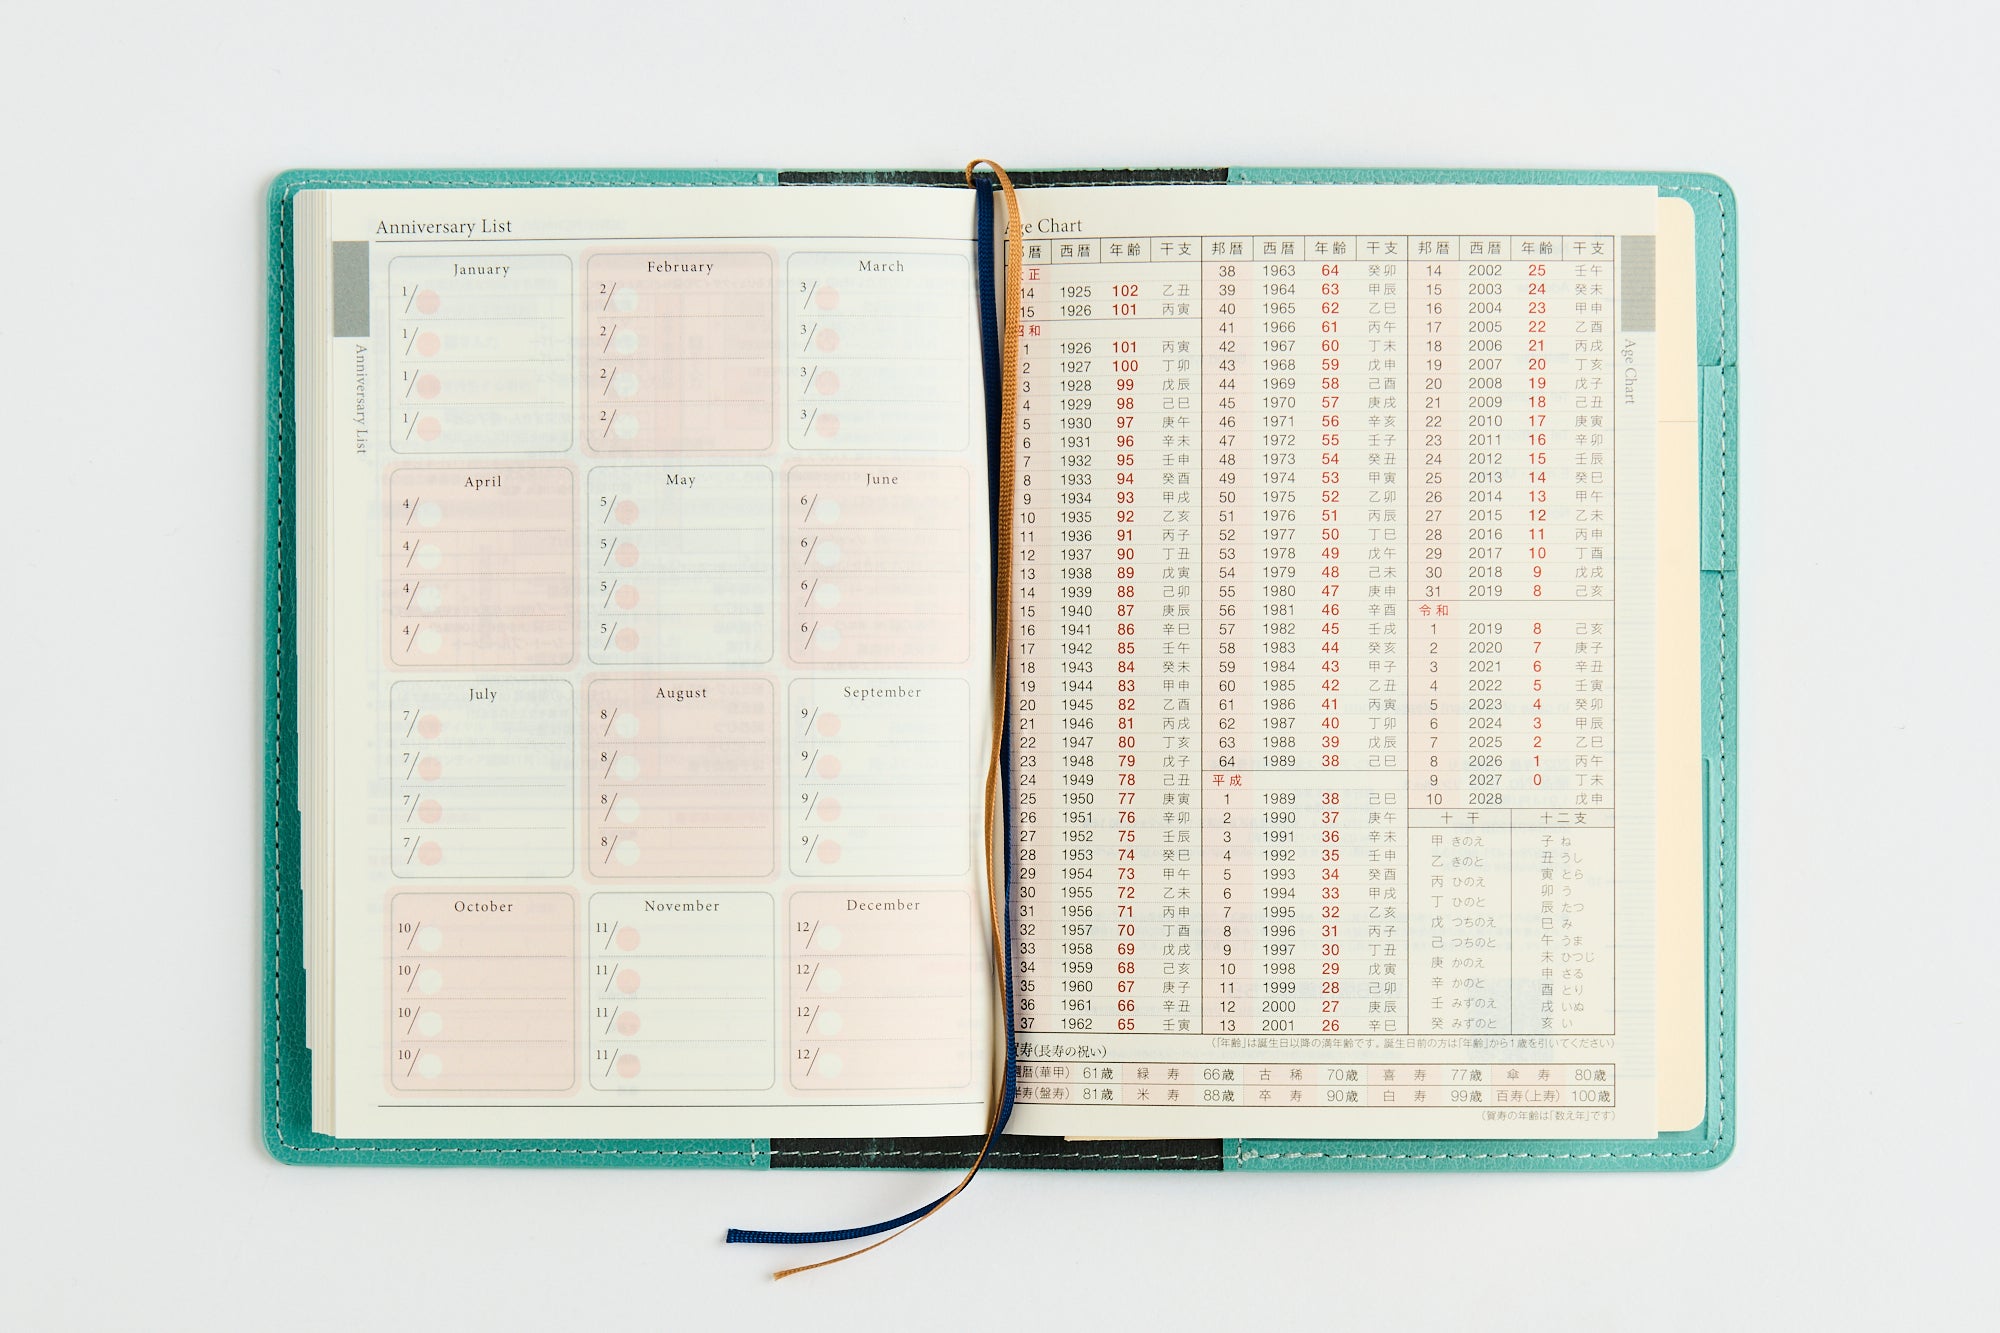 Anniversary List
Anniversary List
January
1/
1/
1/
1/
February
2/
2/
2/
2/
March
3/
3/
3/
3/
April
4/
4/
4/
4/
May
5/
5/
5/
5/
June
6/
6/
6/
6/
July
7/
7/
7/
7/
August
8/
8/
8/
8/
September
9/
9/
9/
9/
October
10/
10/
10/
10/
November
11/
11/
11/
11/
December
12/
12/
12/
12/
Age Chart
Age Chart
暦 西暦 年齢 干支
正
14 1925 102 乙丑
15 1926 101 丙寅
昭和
1 1926 101 丙寅
2 1927 100 丁卯
3 1928 99 戊辰
4 1929 98 己巳
5 1930 97 庚午
6 1931 96 辛未
7 1932 95 壬申
8 1933 94 癸酉
9 1934 93 甲戌
10 1935 92 乙亥
11 1936 91 丙子
12 1937 90 丁丑
13 1938 89 戊寅
14 1939 88 己卯
15 1940 87 庚辰
16 1941 86 辛巳
17 1942 85 壬午
18 1943 84 癸未
19 1944 83 甲申
20 1945 82 乙酉
21 1946 81 丙戌
22 1947 80 丁亥
23 1948 79 戊子
24 1949 78 己丑
25 1950 77 庚寅
26 1951 76 辛卯
27 1952 75 壬辰
28 1953 74 癸巳
29 1954 73 甲午
30 1955 72 乙未
31 1956 71 丙申
32 1957 70 丁酉
33 1958 69 戊戌
34 1959 68 己亥
35 1960 67 庚子
36 1961 66 辛丑
37 1962 65 壬寅
邦暦 西暦 年齢 干支
38 1963 64 癸卯
39 1964 63 甲辰
40 1965 62 乙巳
41 1966 61 丙午
42 1967 60 丁未
43 1968 59 戊申
44 1969 58 己酉
45 1970 57 庚戌
46 1971 56 辛亥
47 1972 55 壬子
48 1973 54 癸丑
49 1974 53 甲寅
50 1975 52 乙卯
51 1976 51 丙辰
52 1977 50 丁巳
53 1978 49 戊午
54 1979 48 己未
55 1980 47 庚申
56 1981 46 辛酉
57 1982 45 壬戌
58 1983 44 癸亥
59 1984 43 甲子
60 1985 42 乙丑
61 1986 41 丙寅
62 1987 40 丁卯
63 1988 39 戊辰
64 1989 38 己巳
平成
1 1989 38 己巳
2 1990 37 庚午
3 1991 36 辛未
4 1992 35 壬申
5 1993 34 癸酉
6 1994 33 甲戌
7 1995 32 乙亥
8 1996 31 丙子
9 1997 30 丁丑
10 1998 29 戊寅
11 1999 28 己卯
12 2000 27 庚辰
13 2001 26 辛巳
邦暦 西暦 年齢 干支
14 2002 25 壬午
15 2003 24 癸未
16 2004 23 甲申
17 2005 22 乙酉
18 2006 21 丙戌
19 2007 20 丁亥
20 2008 19 戊子
21 2009 18 己丑
22 2010 17 庚寅
23 2011 16 辛卯
24 2012 15 壬辰
25 2013 14 癸巳
26 2014 13 甲午
27 2015 12 乙未
28 2016 11 丙申
29 2017 10 丁酉
30 2018 9 戊戌
31 2019 8 己亥
令和
1 2019 8 己亥
2 2020 7 庚子
3 2021 6 辛丑
4 2022 5 壬寅
5 2023 4 癸卯
6 2024 3 甲辰
7 2025 2 乙巳
8 2026 1 丙午
9 2027 0 丁未
10 2028 戊申
十干
甲 きのえ
乙 きのと
丙 ひのえ
丁 ひのと
戊 つちのえ
己 つちのと
庚 かのえ
辛 かのと
壬 みずのえ
癸 みずのと
十二支
子 ね
丑 うし
寅 とら
卯 う
辰 たつ
巳 み
午 うま
未 ひつじ
申 さる
酉 とり
戌 いぬ
亥 い
(「年齢」は誕生日以降の満年齢です。誕生日前の方は「年齢」から1歳を引いてください)
賀寿(長寿の祝い)
還暦(華甲) 61歳 緑寿 66歳 古稀 70歳 喜寿 77歳 傘寿 80歳
半寿(盤寿) 81歳 米寿 88歳 卒寿 90歳 白寿 99歳 百寿(上寿) 100歳
(賀寿の年齢は「数え年」です)